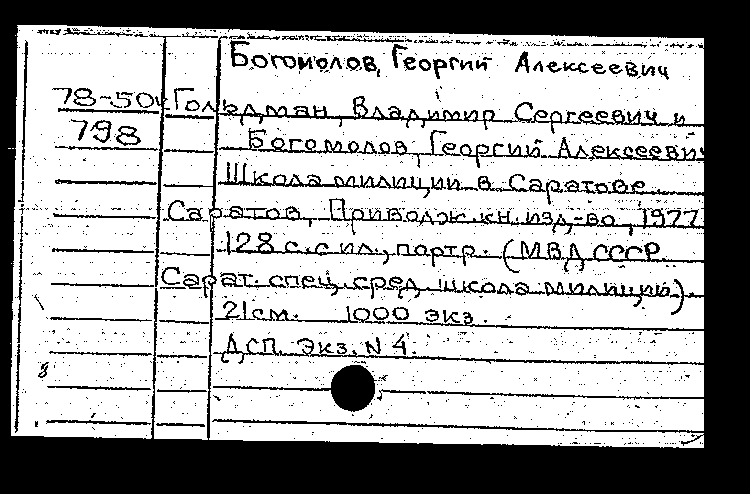 Богомолов, Георгий Алексеевич
78-50ч. Гольдман, Владимир Сергеевич и
798 Богомолов, Георгий Алексеевич
Школа милиции в Саратове.
Саратов, Приволж. кн. изд-во, 1977
128 с. с ил., портр. (МВД СССР.
Сарат. спец. сред. школа милиции).
21 см. 1000 экз.
ДСП. Экз. N 4.
8